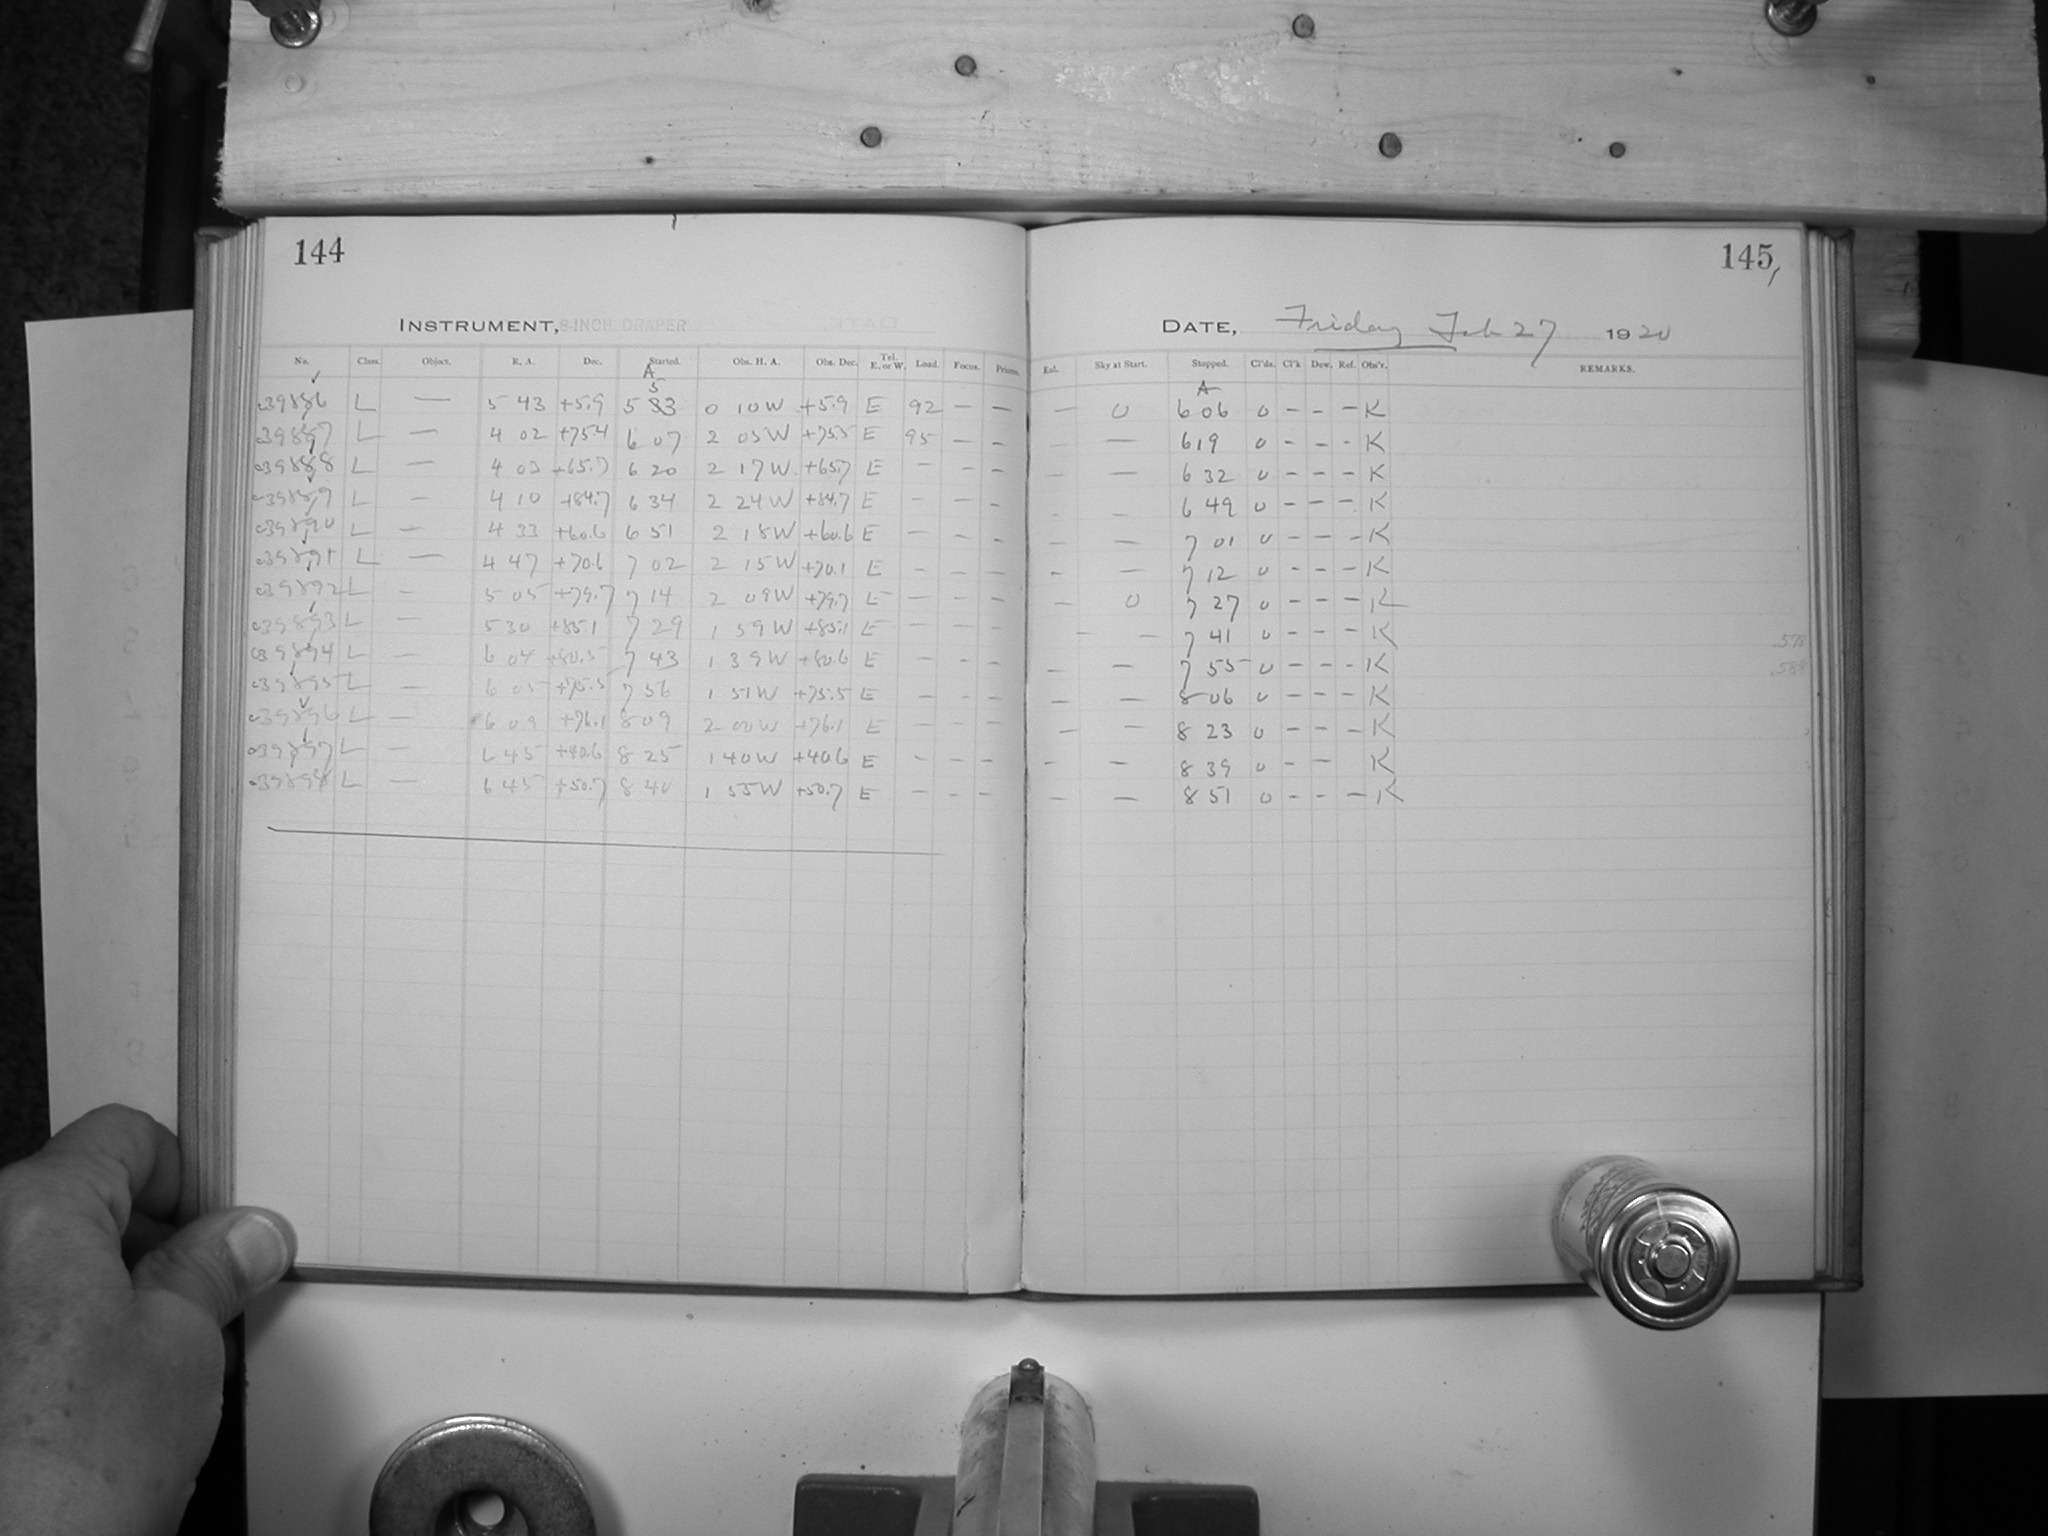 144
145
INSTRUMENT, 8-INCH DRAPER
DATE, Friday Feb 27 1920
No. Class. Object. R. A. Dec. Started. Obs. H. A. Obs. Dec. Tel. E. or W. Load. Focus. Prisms. Eal. Sky at Start. Stopped. Cl'ds. Cl'k Dew. Ref. Obs'r. REMARKS.
A A
5
39886 L — 5 43 +5.9 5 33 0 10W +5.9 E 92 — — — 0 6 06 0 - - - K
39887 L — 4 02 +75.4 6 07 2 05W +75.5 E 95 — — — — 6 19 0 - - - K
39888 L — 4 03 +65.7 6 20 2 17W +65.7 E - - - — — 6 32 0 - - - K
39889 L — 4 10 +84.7 6 34 2 24W +84.7 E - - - - - 6 49 0 - - - K
39890 L — 4 33 +60.6 6 51 2 18W +60.6 E - - - — — 7 01 0 - - - K
39891 L — 4 47 +70.6 7 02 2 15W +70.1 E - - - - — 7 12 0 - - - K
39892 L - 5 05 +79.7 7 14 2 09W +79.7 E - - - — 0 7 27 0 - - - K
39893 L - 5 30 +85.1 7 29 1 59W +85.1 E - - - - - 7 41 0 - - - K
39894 L - 6 04 +80.5 7 43 1 39W +80.6 E - - - — — 7 55 0 - - - K
39895 L — 6 05 +75.5 7 56 1 51W +75.5 E - - - — — 8 06 0 - - - K
39896 L - 6 09 +76.1 8 09 2 00W +76.1 E - - - — — 8 23 0 - - - K
39897 L — 6 45 +40.6 8 25 1 40W +40.6 E - - - - — 8 39 0 - - K
39898 L — 6 45 +50.7 8 40 1 55W +50.7 E - - - — — 8 51 0 - - - K